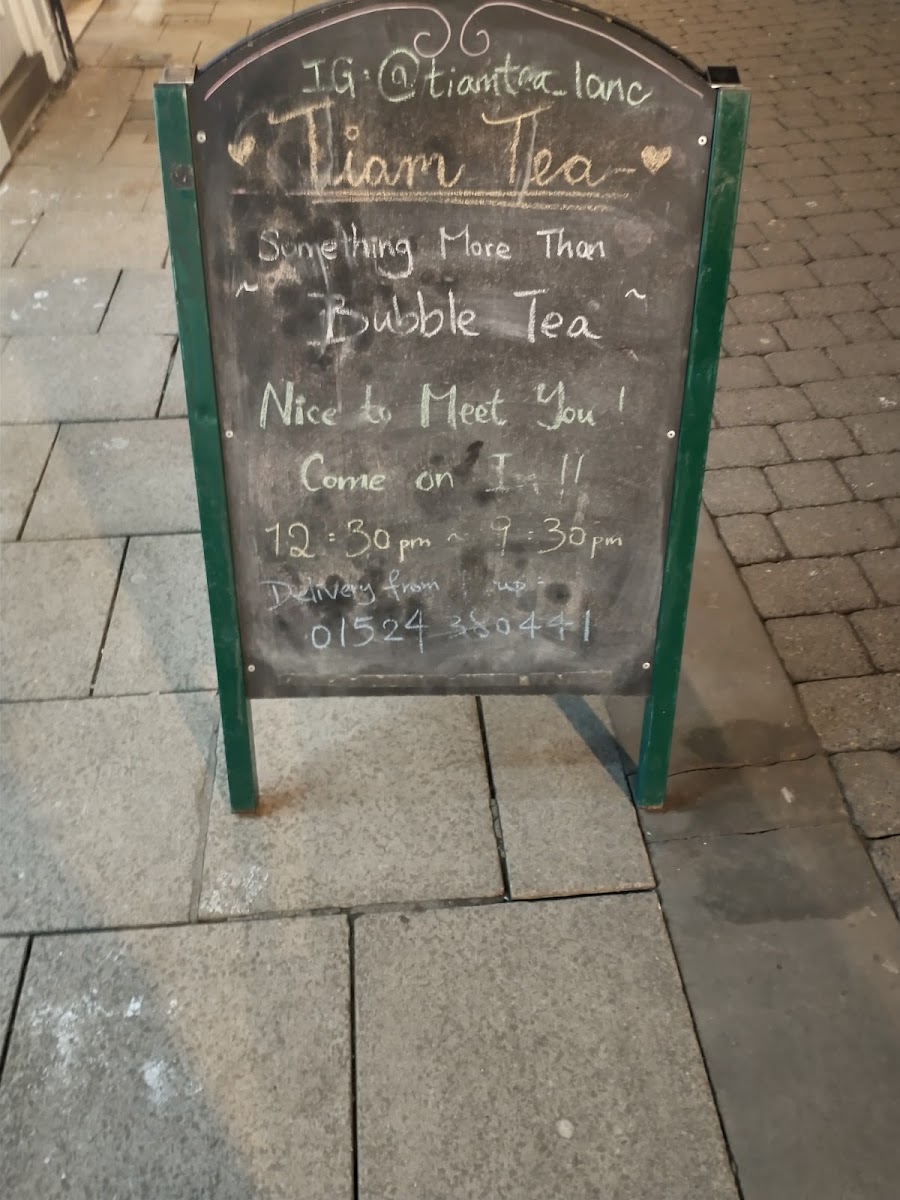 IG: @tiamtea_lanc
Tiam Tea
Something More Than
~ Bubble Tea ~
Nice to Meet You!
Come on In!!
12:30pm ~ 9:30pm
Delivery from up
01524 380441